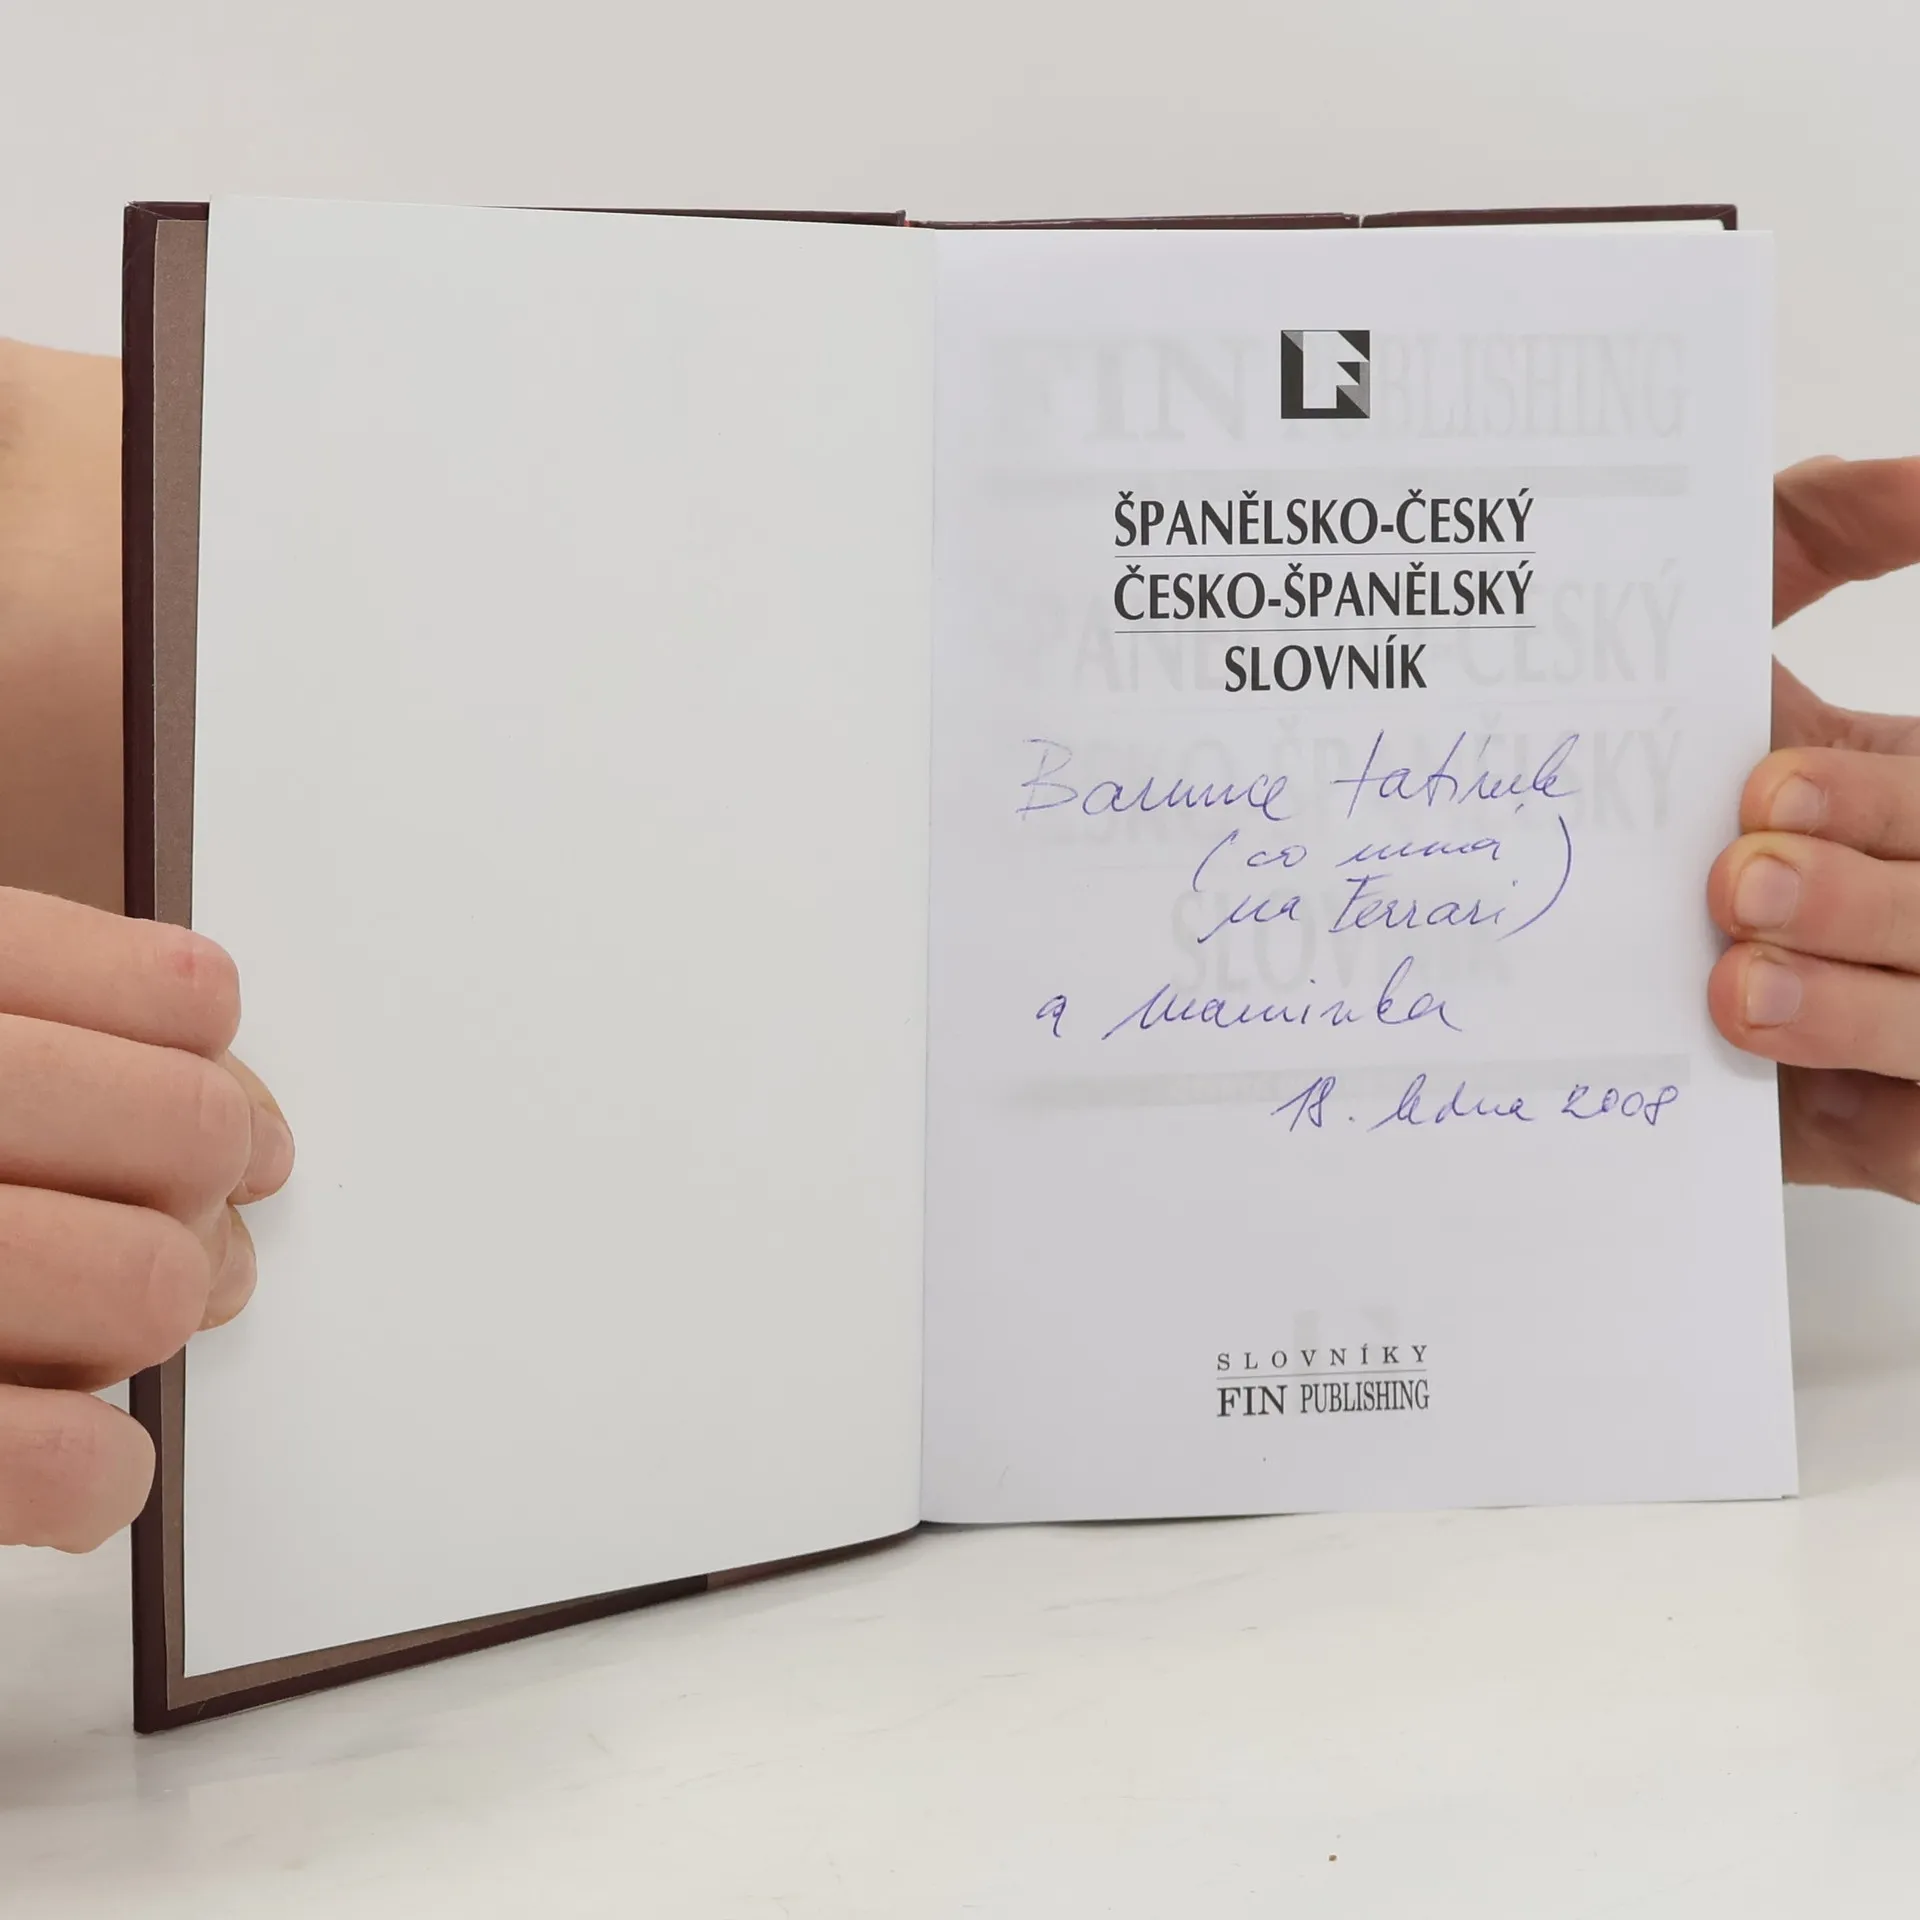 ŠPANĚLSKO-ČESKÝ
ČESKO-ŠPANĚLSKÝ
SLOVNÍK
Barunce tatínek
(co nemá
na Ferrari)
a maminka
18. ledna 2008
SLOVNÍKY
FIN PUBLISHING